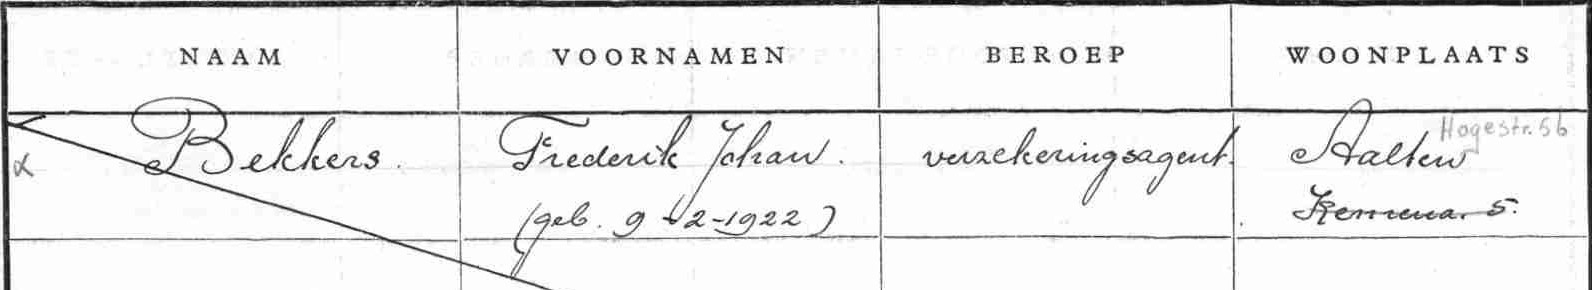 NAAM VOORNAMEN BEROEP WOONPLAATS
Hogestr. 56
Bekkers. Frederik Johan. verzekeringsagent. Aalten
(geb. 9-2-1922) 5.